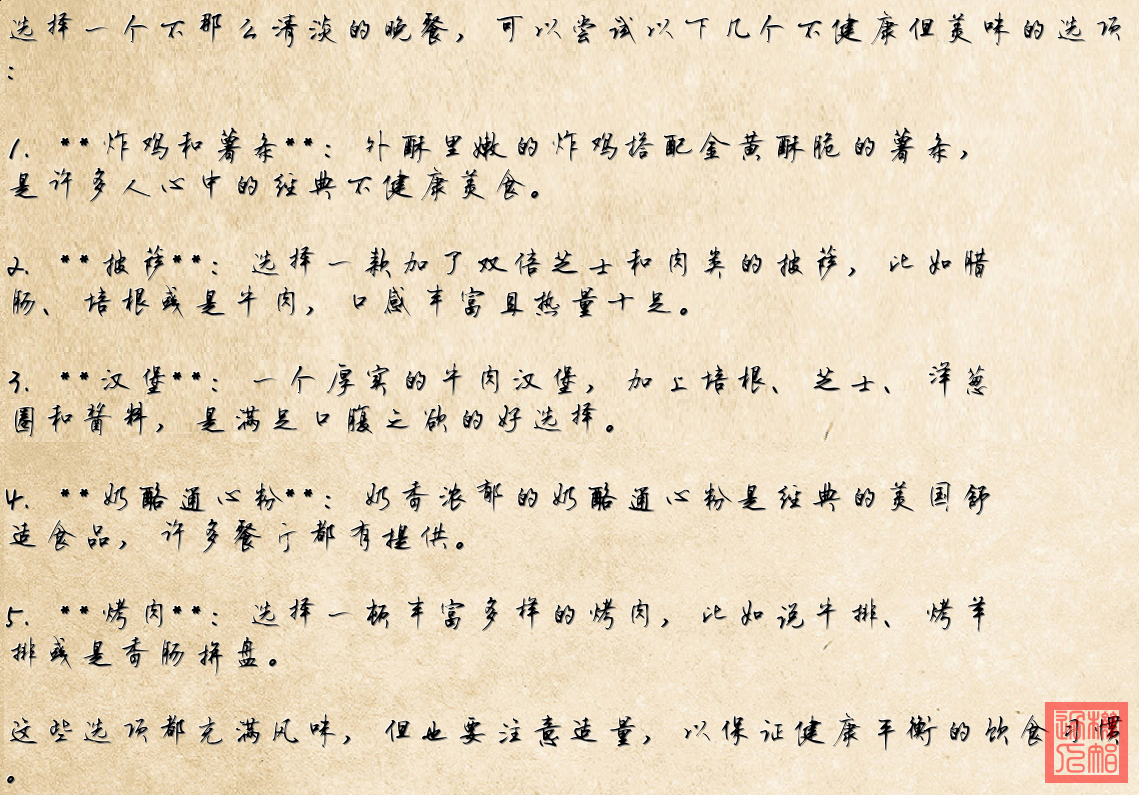 选择一个不那么清淡的晚餐，可以尝试以下几个不健康但美味的选项
：
1. **炸鸡和薯条**：外酥里嫩的炸鸡搭配金黄酥脆的薯条，
是许多人心中的经典不健康美食。
2. **披萨**：选择一款加了双倍芝士和肉类的披萨，比如腊
肠、培根或是牛肉，口感丰富且热量十足。
3. **汉堡**：一个厚实的牛肉汉堡，加上培根、芝士、洋葱
圈和酱料，是满足口腹之欲的好选择。
4. **奶酪通心粉**：奶香浓郁的奶酪通心粉是经典的美国舒
适食品，许多餐厅都有提供。
5. **烤肉**：选择一顿丰富多样的烤肉，比如说牛排、烤羊
排或是香肠拼盘。
这些选项都充满风味，但也要注意适量，以保证健康平衡的饮食习惯
。